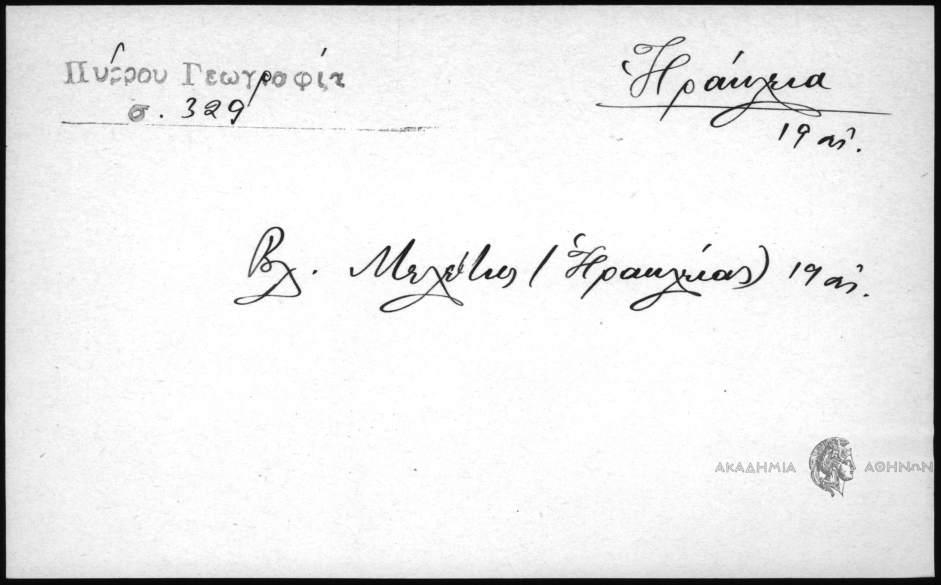 Πύρρου Γεωγραφία
σ. 329
Ἡράκλεια
19 αἰ.
Βλ. Μελέτιος (Ἡρακλείας) 19 αἰ.
ΑΚΑΔΗΜΙΑ ΑΘΗΝΩΝ